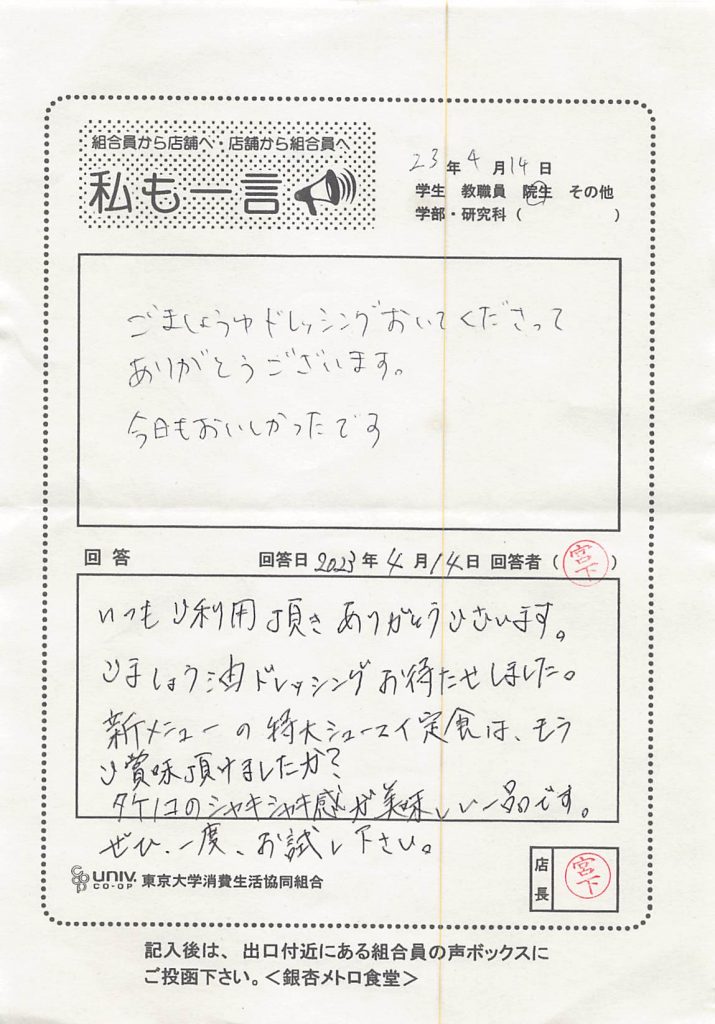 組合員から店舗へ・店舗から組合員へ
私も一言
23年4月14日
学生 教職員 院生 その他
学部・研究科( )
ごましょうゆドレッシングおいてくださって
ありがとうございます。
今日もおいしかったです
回答 回答日2023年4月14日 回答者(宮下)
いつもご利用頂きありがとうございます。
ごましょう油ドレッシングお待たせしました。
新メニューの特大シュースイ定食は、もう
ご賞味頂けましたか?
タケノコのシャキシャキ感が美味しい一品です。
ぜひ、一度、お試し下さい。
UNIV. CO-OP 東京大学消費生活協同組合
店長 宮下
記入後は、出口付近にある組合員の声ボックスに
ご投函下さい。<銀杏メトロ食堂>